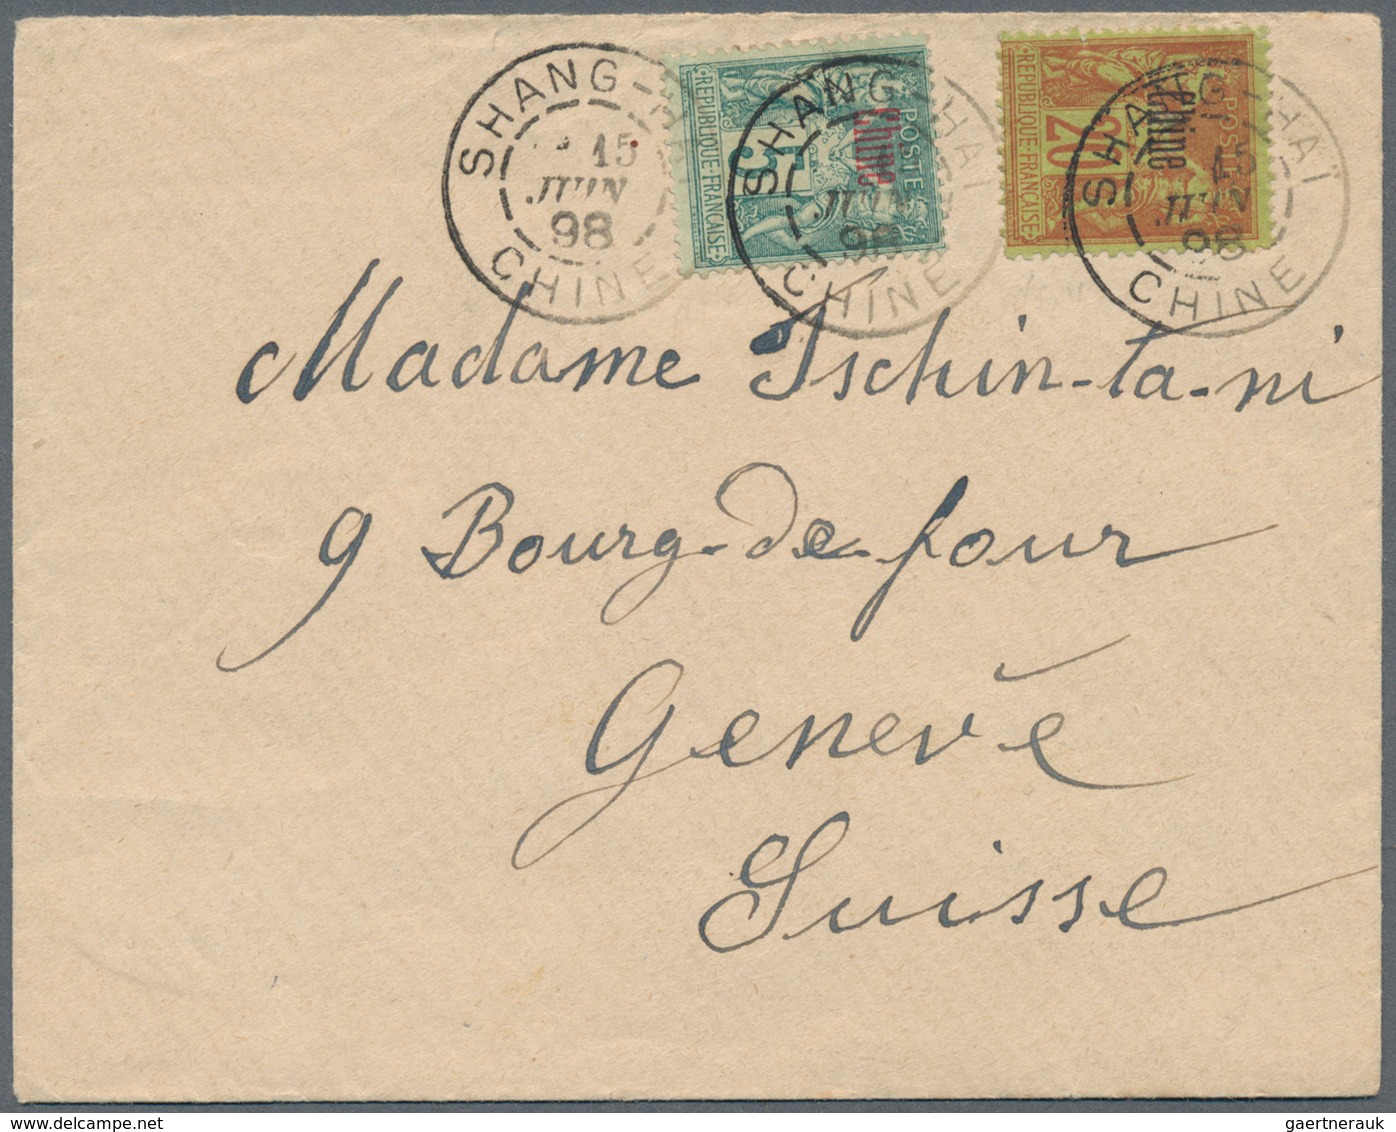 SHANG-HAÏ
15
JUIN
98
CHINE
REPUBLIQUE FRANÇAISE
5
POSTE
Chine
SHANG-HAÏ
15
JUIN
98
CHINE
REPUBLIQUE FRANÇAISE
20
POSTE
Chine
SHANG-HAÏ
15
JUIN
98
CHINE
Madame Tschin-ta-ni
9 Bourg-de-four
Genevè
Suisse
gaertnerauk